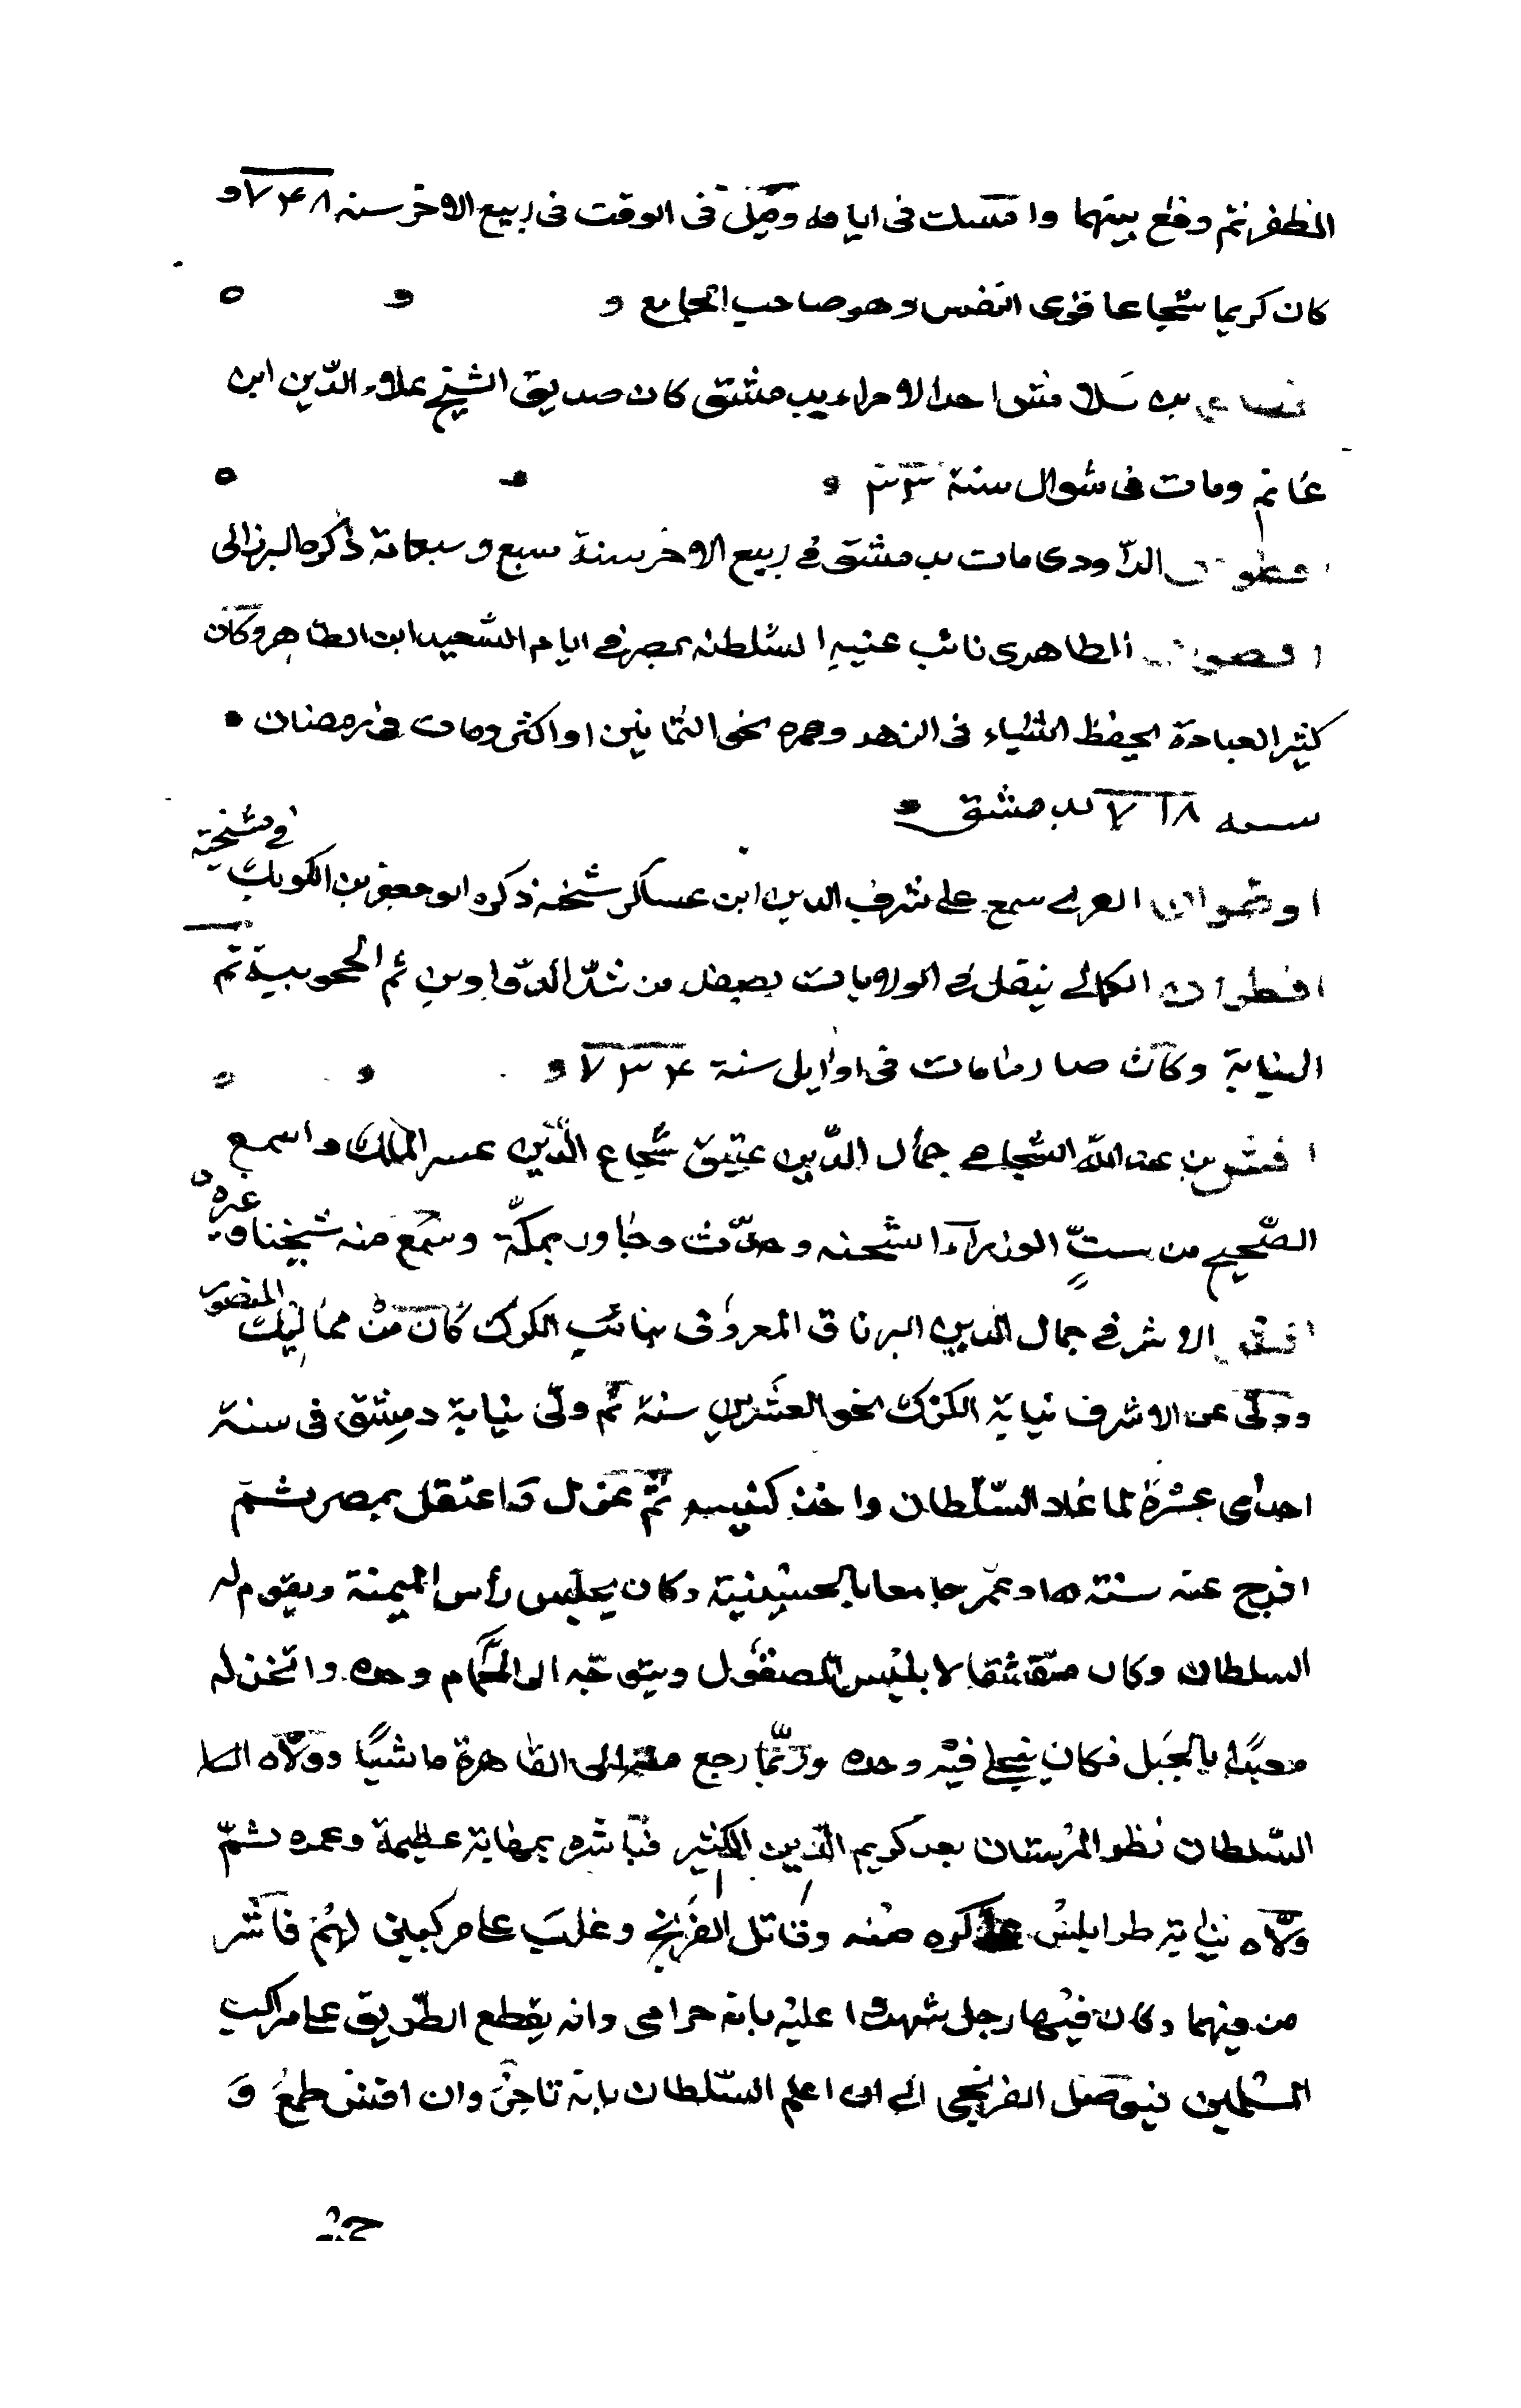 المظفر ثم وقع بينهما وامسك فى ايامه وقتل فى الوقت فى ربيع الاخر سنه ٧٤٨ و
كان كريما شجاعا قوى النفس وهو صاحب الجامع و
بن سلا احد الامراء بدمشق كان صديق الشيخ علاء الدّين ابن
غانم ومات فى شوال سنة ٣٣
الدّاودى مات بدمشق فى ربيع الاخر سنة سبع وسبعمائة ذكره البرزالى
الظاهرى نائب غيبة السّلطنه بمصر فى ايام السّعيد ابن الظاهر وكان
كثير العبادة يحفظ اشياء فى الزهد وعمره نحو الثمانين او اكثر ومات فى رمضان
سنه ٧١٨ بدمشق
سمع على شرف الدين ابن عساكر شيخنه ذكره ابو جعفر بن الكويك فى مشيخته
الكمالى تنقل فى الولايات بصفد من شدّ الدّواوين ثم الحجوبية ثم
النيابة وكان صارما مات فى اوايل سنة ٧٣٤
بن عبد الله الشجاعى جمال الدّين عتيق شجاع الدّين واسمع
الصّحيح من ستّ الوزراء وحدّث وجاور بمكّة وسمع منه شيخنا وغيره
الاشرفى جمال الدين المعروف بنائب الكرك كان من مماليك المنصور
وولى عن الاشرف نيابة الكرك نحو العشرين سنة ثم ولى نيابة دمشق فى سنة
احدى عشرة لما عاد السّلطان ثم عزل واعتقل بمصر ثم
افرج عنه سنة ١٥ وعمّر جامعا بالحسينية وكان يجلس رأس الميمنة ويقوم له
السلطان وكان متقشفا لا يلبس المصقول ويتوجّه الى الحمّام وحده واتخذ له
معبدا بالجبل فكان وحده وربّما رجع منه الى القاهرة ماشيا وولاه
السّلطان نظر المرستان بعد كريم الدّين الكبير فباشره بمهابة عظيمة وعمره ثمّ
ولاّه نيابة طرابلس على كره منه وقاتل الفرنج وغلب على مركبين لهم فاسر
من فيهما وكان فيها رجل شهدوا عليه بانه حرامى وانه يقطع الطّريق على مراكب
المسلمين فتوصل الفرنجى الى ان اعلم السّلطان بانه تاجر وان اقش طمع و